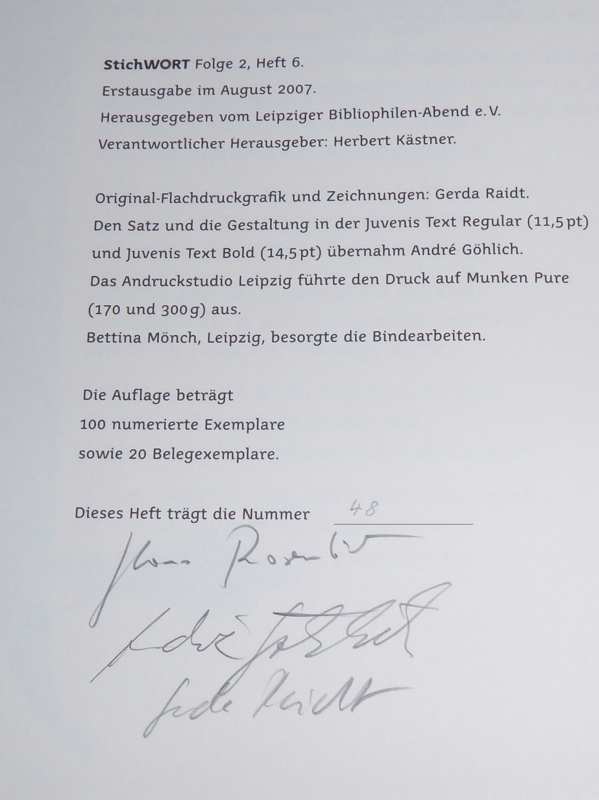 StichWORT Folge 2, Heft 6.
Erstausgabe im August 2007.
Herausgegeben vom Leipziger Bibliophilen-Abend e.V.
Verantwortlicher Herausgeber: Herbert Kästner.
Original-Flachdruckgrafik und Zeichnungen: Gerda Raidt.
Den Satz und die Gestaltung in der Juvenis Text Regular (11,5 pt)
und Juvenis Text Bold (14,5 pt) übernahm André Göhlich.
Das Andruckstudio Leipzig führte den Druck auf Munken Pure
(170 und 300 g) aus.
Bettina Mönch, Leipzig, besorgte die Bindearbeiten.
Die Auflage beträgt
100 numerierte Exemplare
sowie 20 Belegexemplare.
Dieses Heft trägt die Nummer 48
Gerda Raidt